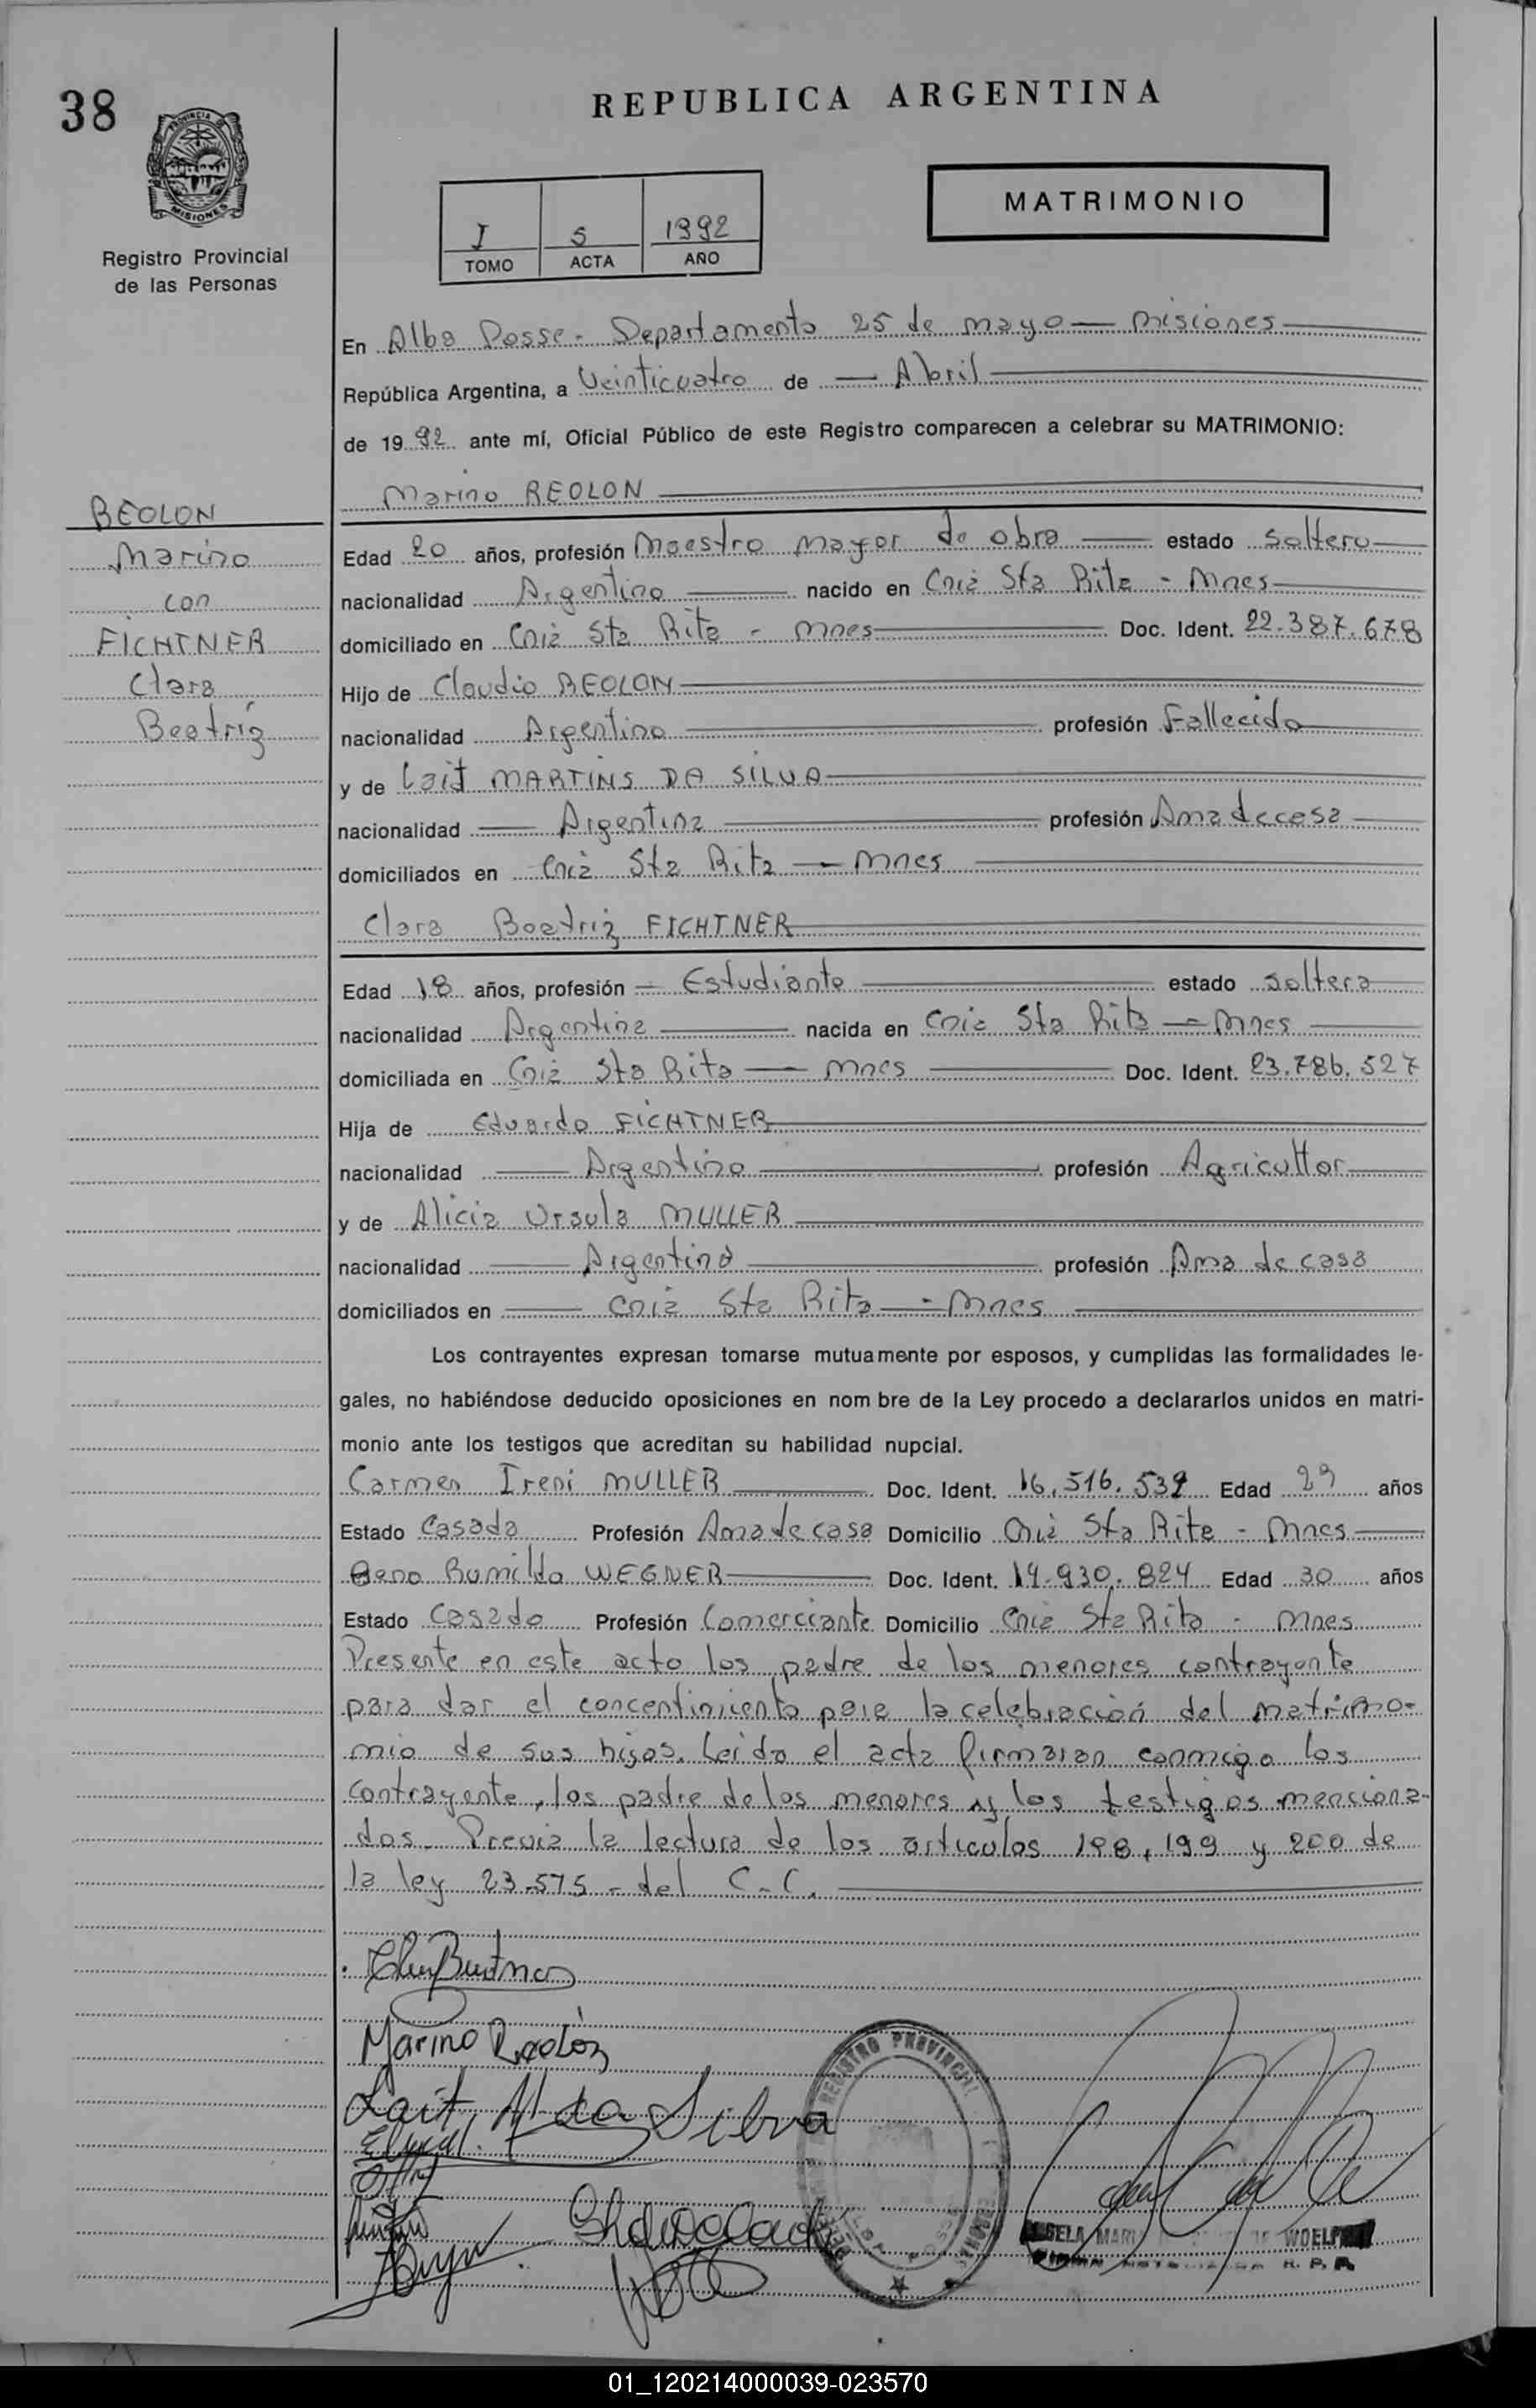 38
REPUBLICA ARGENTINA
PROVINCIA DE
MISIONES
Registro Provincial
de las Personas
I 5 1992
TOMO ACTA AÑO
MATRIMONIO
En Alba Posse - Departamento 25 de mayo — Misiones
República Argentina, a Veinticuatro de — Abril
de 1992 ante mí, Oficial Público de este Registro comparecen a celebrar su MATRIMONIO:
REOLON
Marino
con
FICHTNER
Clara
Beatríz
Marino REOLON
Edad 20 años, profesión Maestro mayor de obra — estado soltero
nacionalidad Argentino nacido en Cnia Sta Rita - Mnes
domiciliado en Cnia Sta Rita - Mnes Doc. Ident. 22.387.678
Hijo de Claudio REOLON
nacionalidad Argentino profesión Fallecido
y de Lait MARTINS DA SILVA
nacionalidad — Argentina profesión Ama de casa
domiciliados en Cnia Sta Rita — Mnes
Clara Beatriz FICHTNER
Edad 18 años, profesión — Estudiante estado soltera
nacionalidad Argentina nacida en Cnia Sta Rita — Mnes
domiciliada en Cnia Sta Rita — Mnes Doc. Ident. 23.786.527
Hija de Eduardo FICHTNER
nacionalidad — Argentino profesión Agricultor
y de Alicia Ursula MULLER
nacionalidad — Argentina profesión Ama de casa
domiciliados en — Cnia Sta Rita — Mnes
Los contrayentes expresan tomarse mutuamente por esposos, y cumplidas las formalidades le-
gales, no habiéndose deducido oposiciones en nom bre de la Ley procedo a declararlos unidos en matri-
monio ante los testigos que acreditan su habilidad nupcial.
Carmen Ireni MULLER Doc. Ident. 16.516.539 Edad 29 años
Estado Casada Profesión Ama de casa Domicilio Cnia Sta Rita - Mnes
Beno Rumildo WEGNER Doc. Ident. 14.930.824 Edad 30 años
Estado Casado Profesión Comerciante Domicilio Cnia Sta Rita - Mnes
Presente en este acto los padre de los menores contrayente
para dar el concentimiento para la celebración del matrimo-
nio de sus hijos. Leida el acta firmaran conmigo los
contrayente, los padre de los menores y los testigos menciona-
dos. Previa la lectura de los articulos 198, 199 y 200 de
la ley 23.575 - del C.C.
Marino Reolón
Lait M da Silva
REGISTRO PROVINCIAL
WOELF
R. P. P.
01_120214000039-023570